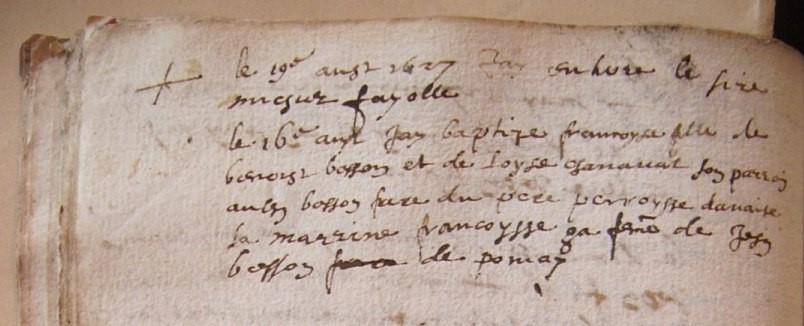 le 19e aust 1627 Jay enture le sire
micsur fayolle
le 16e aust Jay baptize francoyse fille de
benoist bosson et de loyse chanavat son parrin
bosson frere du pere perroysse davaise
sa marrine francoysse ga feme de Jehn
bosson de pomay